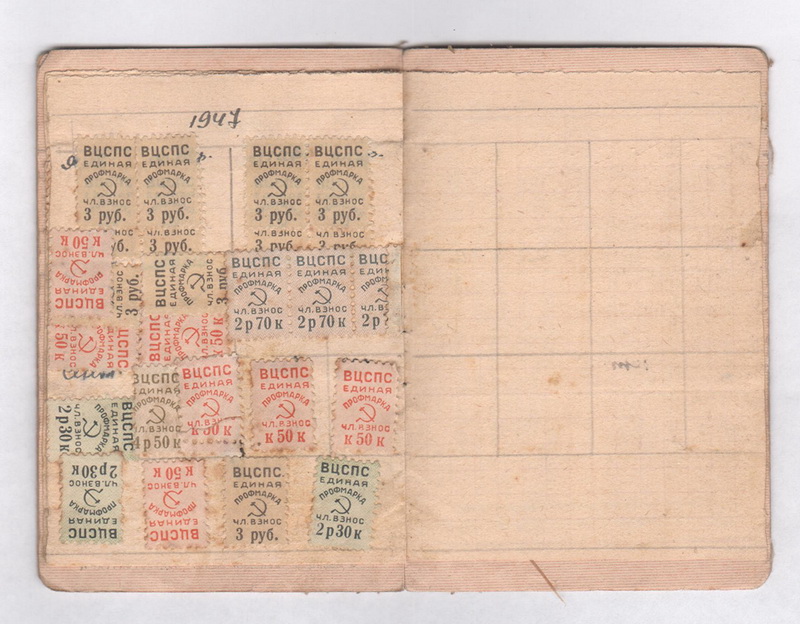 1947
ВЦСПС ВЦСПС ВЦСПС ВЦСПС
ЕДИНАЯ ЕДИНАЯ ЕДИНАЯ ЕДИНАЯ
ПРОФМАРКА ПРОФМАРКА ПРОФМАРКА ПРОФМАРКА
ЧЛ.ВЗНОС ЧЛ.ВЗНОС ЧЛ.ВЗНОС ЧЛ.ВЗНОС
3 руб. 3 руб. 3 руб. 3 руб.
3 руб. 3 руб. 3 руб.
ВЦСПС
ЕДИНАЯ
ПРОФМАРКА
ЧЛ.ВЗНОС
К 50 К
ЧЛ.ВЗНОС
3 руб.
ВЦСПС
ЕДИНАЯ
ПРОФМАРКА
ЧЛ.ВЗНОС
3 руб
ВЦСПС ВЦСПС ВЦС
ЕДИНАЯ ЕДИНАЯ
ПРОФМАРКА ПРОФМАРКА
ЧЛ.ВЗНОС ЧЛ.ВЗНОС
2р70к 2р70к 2р
ВЦСПС
ЕДИНАЯ
50 К
ВЦСПС
ЕДИНАЯ
К 50 К
ВЦСПС
ЕДИНАЯ
ПРОФМАРКА
ЧЛ.ВЗНОС
2р30к
ВЦСПС ВЦСПС ВЦСПС ВЦСПС
ЕДИНАЯ ЕДИНАЯ ЕДИНАЯ
ПРОФМАРКА ПРОФМАРКА ПРОФМАРКА
ЧЛ.ВЗНОС ЧЛ.ВЗНОС
р50к 50 К К 50 К К 50 К
ВЦСПС ВЦСПС ВЦСПС ВЦСПС
ЕДИНАЯ ЕДИНАЯ ЕДИНАЯ ЕДИНАЯ
ПРОФМАРКА ПРОФМАРКА ПРОФМАРКА ПРОФМАРКА
ЧЛ.ВЗНОС ЧЛ.ВЗНОС ЧЛ.ВЗНОС ЧЛ.ВЗНОС
2р30к К 50 К 3 руб. 2р30к